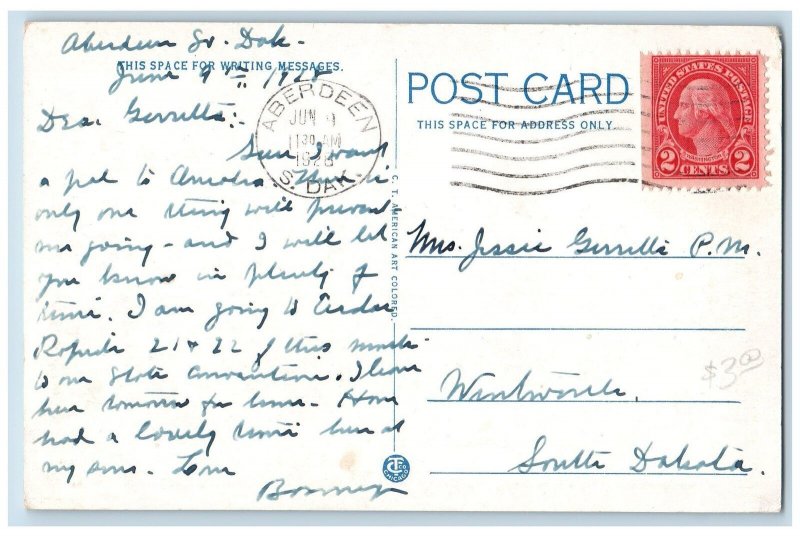 Aberdeen So. Dak.
THIS SPACE FOR WRITING MESSAGES.
June 9th 1928
Dear Gerritts:
Sure I want
a pal to
only one thing will prevent
me going - and I will let
you know in plenty of
time. I am going to Cedar
Rapids 21 & 22 of this month
to our State Convention. I leave
here tomorrow for home. Have
had a lovely time here at
my sons. Love
ABERDEEN
JUN 9
11 30 AM
1928
S. DAK.
C. T. AMERICAN ART COLORED.
POST CARD
THIS SPACE FOR ADDRESS ONLY.
UNITED STATES POSTAGE
WASHINGTON
2 CENTS 2
Mrs. Jessie Gerritts P.M.
Wentworth,
South Dakota.
$3.00
CHICAGO